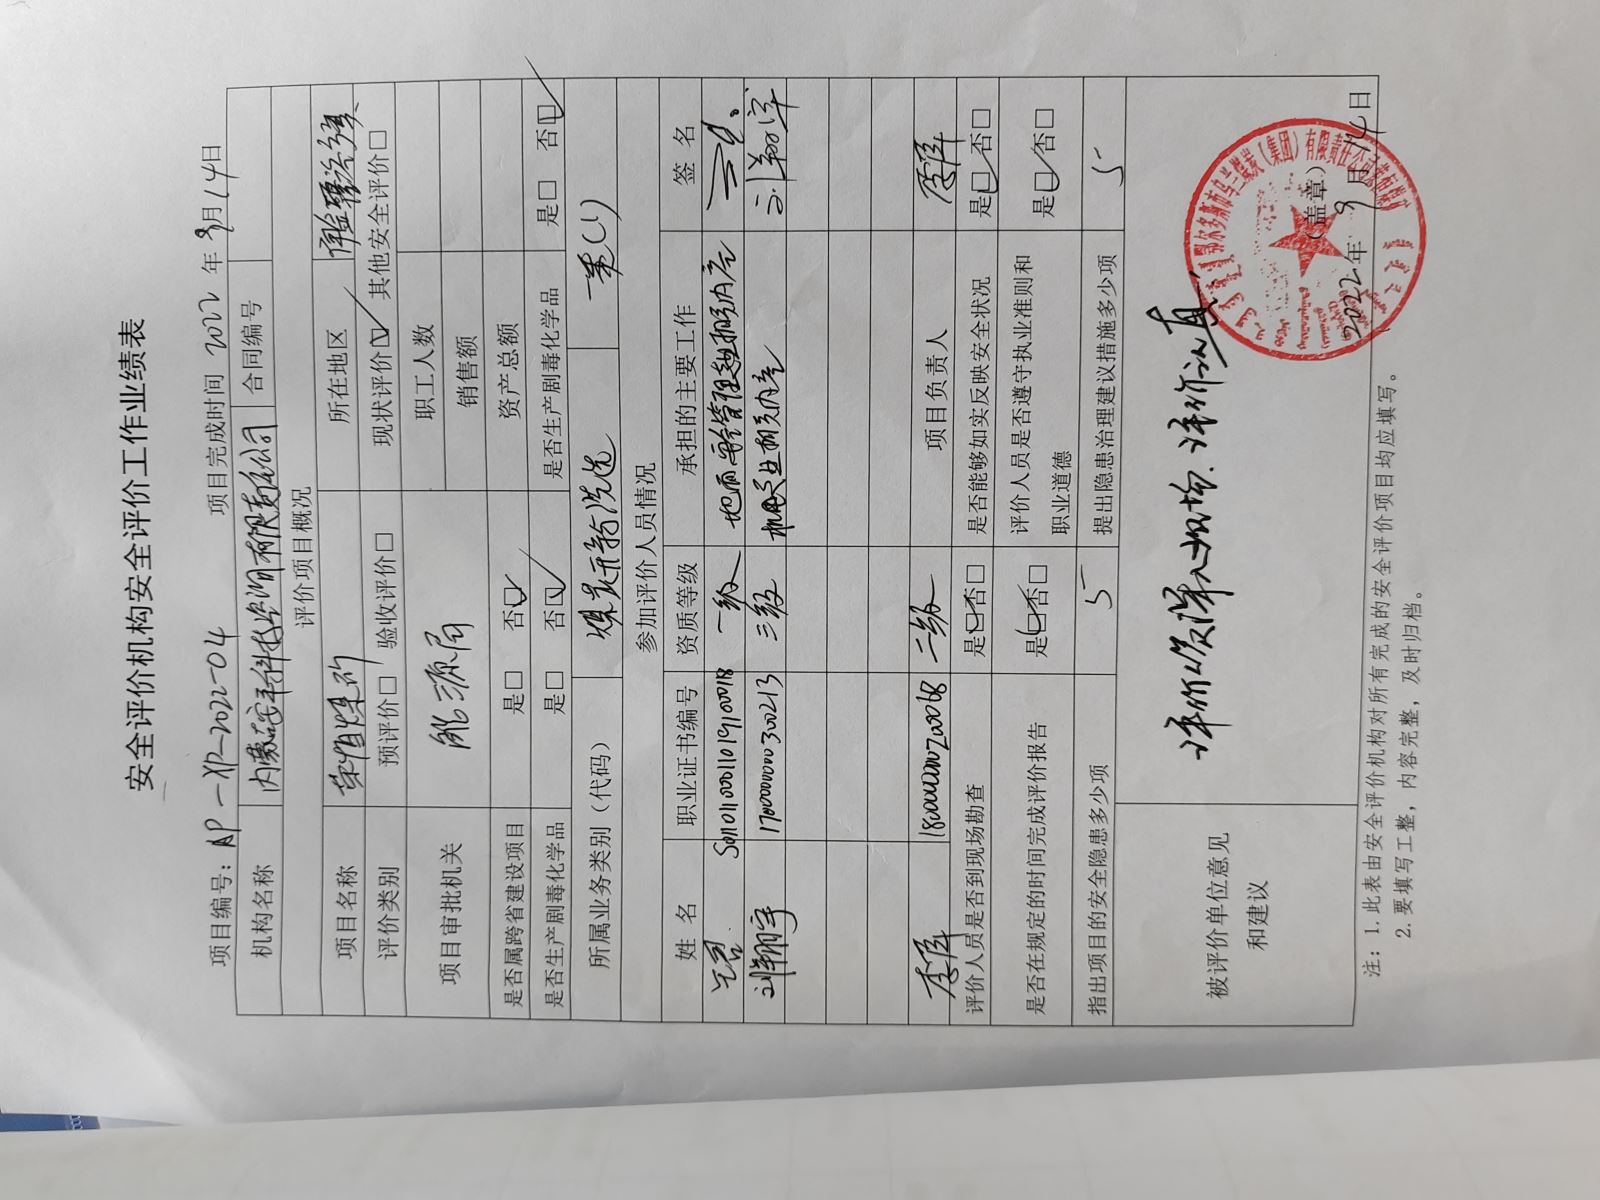 安全评价机构安全评价工作业绩表
项目编号：AP-XP-2022-04 项目完成时间 2022 年 9月14日
机构名称 内蒙 科技咨询有限责任公司 合同编号
评价项目概况
项目名称 荣恒煤矿 所在地区
评价类别 预评价□ 验收评价□ 现状评价☑ 其他安全评价□
项目审批机关 能源局 职工人数
销售额
是否属跨省建设项目 是□ 否☑ 资产总额
是否生产剧毒化学品 是□ 否☑ 是否生产剧毒化学品 是□ 否☑
所属业务类别（代码） 煤炭开采与洗选
参加评价人员情况
姓 名 职业证书编号 资质等级 承担的主要工作 签 名
S011011000110191001018 一级 地面 安全管理 相关内容
刘翔宇 1700000000300213 三级 机电专业相关内容 刘翔宇
李军 1800000000200068 二级 项目负责人 李军
评价人员是否到现场勘查 是☑否□ 是否能够如实反映安全状况 是☑否□
是否在规定的时间完成评价报告 是☑否□ 评价人员是否遵守执业准则和
职业道德 是☑否□
指出项目的安全隐患多少项 5 提出隐患治理建议措施多少项 5
被评价单位意见
和建议
评价人员深入现场、评价认真。
（盖章）
2022年 9月14日
鄂尔多斯市乌兰煤炭（集团）有限责任公司荣恒煤矿
注：1.此表由安全评价机构对所有完成的安全评价项目均应填写。
2.要填写工整，内容完整，及时归档。